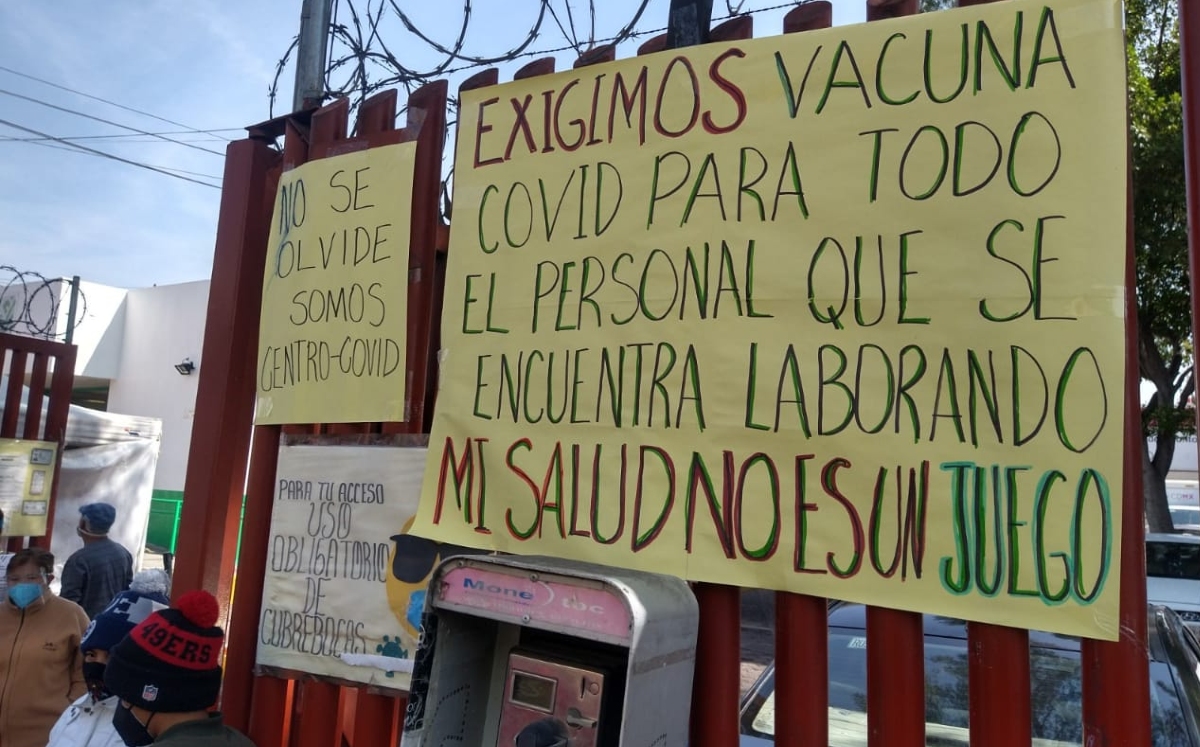 NO SE
OLVIDE
SOMOS
CENTRO-COVID
EXIGIMOS VACUNA
COVID PARA TODO
EL PERSONAL QUE SE
ENCUENTRA LABORANDO
MI SALUD NO ES UN JUEGO
PARA TU ACCESO
USO
OBLIGATORIO
DE
CUBREBOCAS
49ERS
NFL